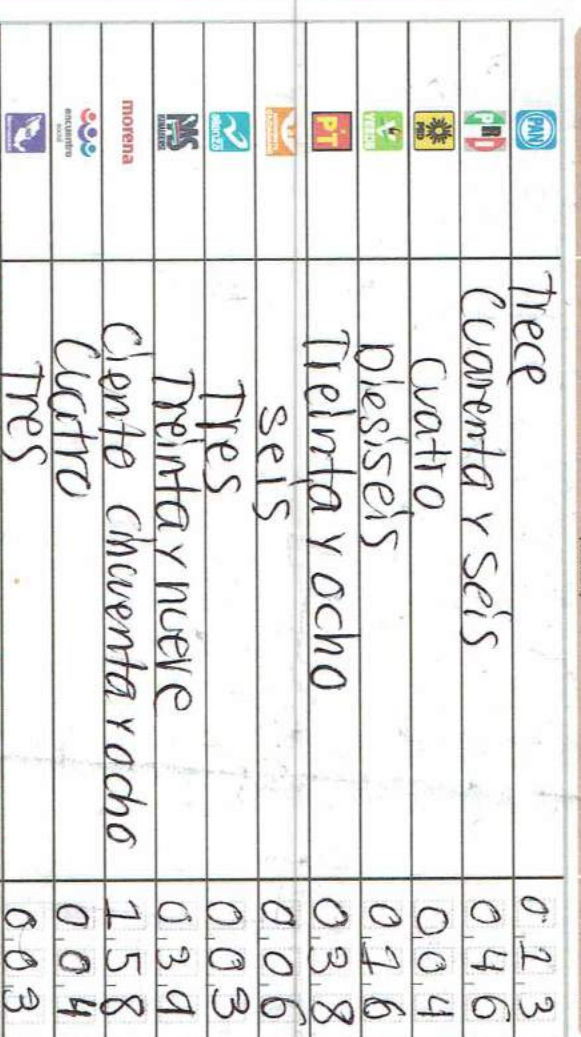 PAN Trece 0 1 3
PRI Cuarenta y seis 0 4 6
PRD Cuatro 0 0 4
VERDE Diesiseis 0 1 6
PT Treinta y ocho 0 3 8
seis 0 0 6
alianza Tres 0 0 3
Treinta y nueve 0 3 9
morena Ciento Chcuenta y ocho 1 5 8
encuentro social Cuatro 0 0 4
Tres 0 0 3